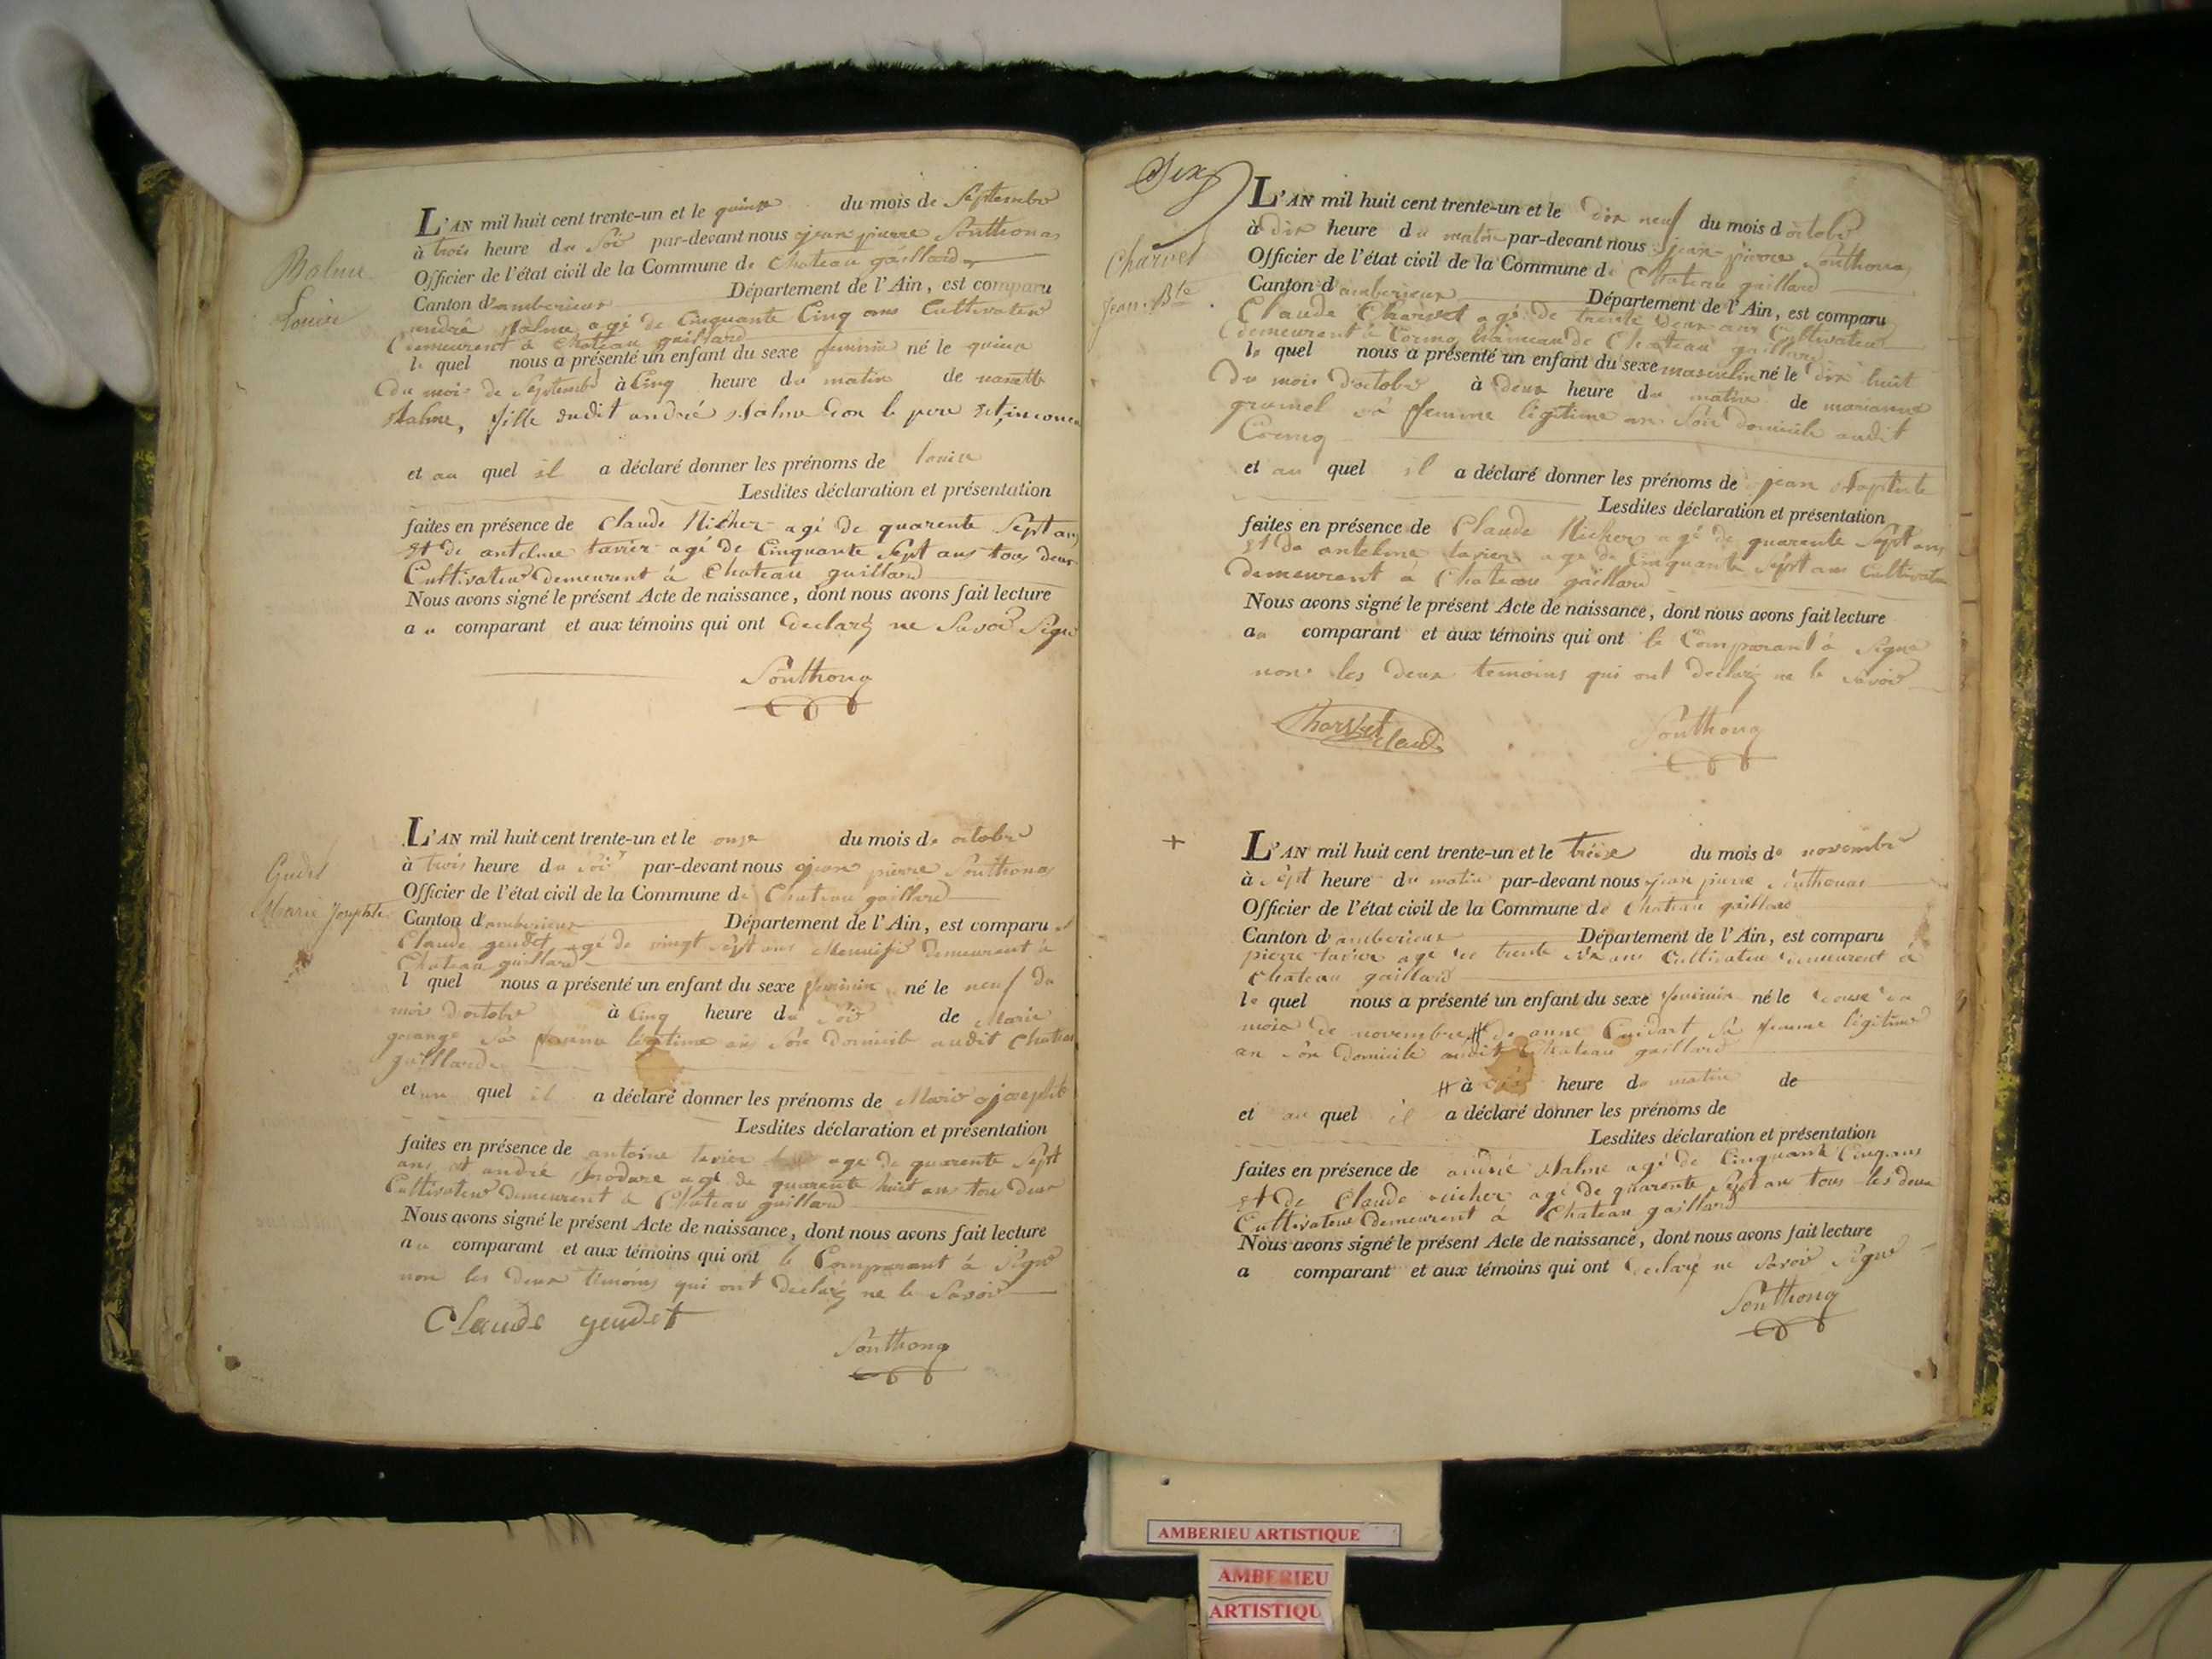 Balme
Louise
L'AN mil huit cent trente-un et le quinze du mois de Septembre
à trois heure du Soir par-devant nous jean pierre Southonas
Officier de l'état civil de la Commune de Chateau gaillard
Canton d'amberieux Département de l'Ain, est comparu
andré Balme agé de Cinquante Cinq ans Cultivateur
Demeurent à Chateau gaillard
le quel nous a présenté un enfant du sexe feminin né le quinze
du mois de Septembre à Cinq heure du matin de
Balme, fille dudit andré Balme don le pere Est inconu
et au quel il a déclaré donner les prénoms de louise
Lesdites déclaration et présentation
faites en présence de Claude Richer agé de quarente Sept ans
Et de antelme tavier agé de Cinquante Sept ans tous deux
Cultivateur demeurent à Chateau gaillard
Nous avons signé le présent Acte de naissance, dont nous avons fait lecture
au comparant et aux témoins qui ont declaré ne Savoir Signé
Southona
Gudet
Marie Josephte
L'AN mil huit cent trente-un et le onze du mois de octobre
à trois heure du Soir par-devant nous jean pierre Southonas
Officier de l'état civil de la Commune de Chateau gaillard
Canton d'amberieux Département de l'Ain, est comparu
Claude geudet agé de vingt sept ans Menuisier Demeurent à
Chateau gaillard
l quel nous a présenté un enfant du sexe feminin né le neuf du
mois d'octobre à Cinq heure du Soir de Marie
grange Sa femme legitime an Son Domicile audit Chateau
gaillard
et au quel il a déclaré donner les prénoms de Marie josephte
Lesdites déclaration et présentation
faites en présence de antoine tavier age de quarente Sept
ans et andré agé de quarente huit ans tou deux
Cultivateur demeurent à Chateau gaillard
Nous avons signé le présent Acte de naissance, dont nous avons fait lecture
au comparant et aux témoins qui ont le Comparant à Signé
non les deux témoins qui ont declaré ne le Savoir
Claude geudet
Southona
Dix
Charvet
Jean Bte
L'AN mil huit cent trente-un et le dix neuf du mois d octobre
à dix heure du matin par-devant nous jean-pierre Southonas
Officier de l'état civil de la Commune de Chateau gaillard
Canton d'amberieux Département de l'Ain, est comparu
Claude Charvet agé de trente deux ans Cultivateur
demeurent à Cormoz hameau de Chateau gaillard
le quel nous a présenté un enfant du sexe masculin né le dix huit
du mois d'octobre à deux heure du matin de marianne
gramel sa femme légitime an Son domicile audit
Cormoz
et au quel il a déclaré donner les prénoms de jean Baptiste
Lesdites déclaration et présentation
faites en présence de Claude Richer agé de quarente Sept ans
Et de antelme tavier agé de Cinquante Sept ans Cultivateur
demeurent à Chateau gaillard
Nous avons signé le présent Acte de naissance, dont nous avons fait lecture
au comparant et aux témoins qui ont le Comparant à Signé
non les deux temoins qui ont declaré ne le Savoir
Charvet Claude
Southona
+
L'AN mil huit cent trente-un et le treize du mois de novembre
à Sept heure du matin par-devant nous jean pierre Southonas
Officier de l'état civil de la Commune de Chateau gaillard
Canton d'amberieux Département de l'Ain, est comparu
pierre tavier agé de trente ans Cultivateur demeurent à
Chateau gaillard
le quel nous a présenté un enfant du sexe feminin né le douze du
mois de novembre # de anne Sa femme légitime
an Son domicile audit Chateau gaillard
# à heure du matin de
et au quel il a déclaré donner les prénoms de
Lesdites déclaration et présentation
faites en présence de andré Balme agé de Cinquante Cinq ans
Et de Claude richer agé de quarente Sept an tous les deux
Cultivateur demeurent à Chateau gaillard
Nous avons signé le présent Acte de naissance, dont nous avons fait lecture
a comparant et aux témoins qui ont declaré ne Savoir Signé
Southona
AMBERIEU ARTISTIQUE
AMBERIEU
ARTISTIQU